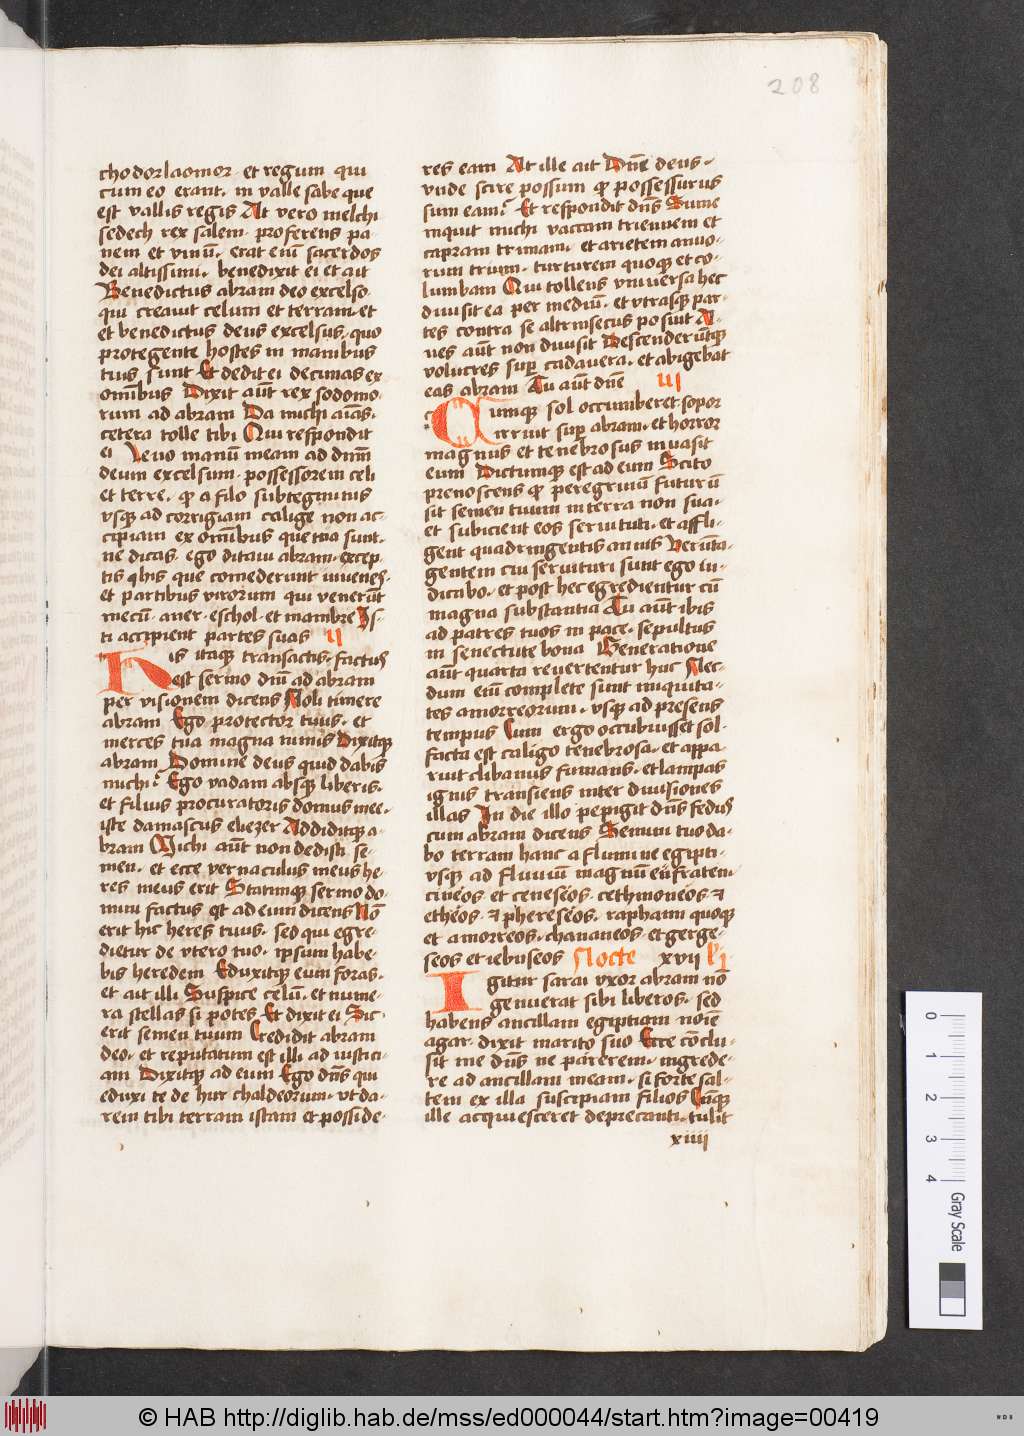 208
chodorlaomor · et regum qui
cum eo erant · in valle sabe que
est vallis regis At vero melchi
sedech rex salem · proferens pa-
nem et vinū · erat eīm sacerdos
dei altissimi · benedixit ei et ait
Benedictus abram deo excelso
qui creavit celum et terram · et
et benedictus deus excelsus · quo
protegente hostes in manibus
tuis sunt Et dedit ei decimas ex
omībus Dixit aūt rex sodomo-
rum ad abram Da michi aīas ·
cetera tolle tibi Qui respondit
ei Levo manū meam ad dnm̄
deum excelsum · possessorem celi
et terre · qp a filo subtegminis
vsqꝫ ad corrigiam calige non ac-
cipiam ex omībus que tua sunt ·
ne dicas · ego ditaui abram · excep-
tis qhis que comederunt iuuenes ·
et partibus virorum qui venerūt
mecū · aner · eschol · et mambre Is-
ti accipient partes suas II
His itaqꝫ transactis · factus
est sermo dnī ad abram
per visionem dicens Noli timere
abram Ego protector tuus · et
merces tua magna nimis Dixitqꝫ
abram Domine deus quid dabis
michi? Ego vadam absqꝫ liberis ·
et filius procuratoris domus mee ·
iste damascus eliezer Addiditqꝫ a-
bram Michi aūt non dedisti se-
men · et ecce vernaculus meus he
res meus erit Statimqꝫ sermo do
mini factus est ad eum dicens Nō
erit hic heres tuus · sed qui egre-
dietur de vtero tuo · ipsum habe-
bis heredem Eduxitqꝫ eum foras ·
et ait illi Suspice celū · et nume-
ra stellas si potes Et dixit ei Sic ·
erit semen tuum Credidit abram
deo · et reputatum est illi ad iustici-
am Dixitqꝫ ad eum Ego dns̄ qui
eduxi te de hur chaldeorum · vt da-
rem tibi terram istam et posside-
res eam At ille ait Dnē deus ·
vnde scire possum qp possessurus
sum eam? Et respondit dns̄ Sume
inquit michi vaccam triennem et
capram trimam · et arietem anno-
rum trium · turturem quoqꝫ et co-
lumbam Qui tollens vniuersa hec
diuisit ea per mediū · et vtrasqꝫ par-
tes contra se altrinsecus posuit A-
ues aūt non diuisit Descenderūtqꝫ
volucres suꝑ cadauera · et abigebat
eas abram Tu aūt dnē III
Cumqꝫ sol occumberet · sopor
irruit suꝑ abram · et horror
magnus et tenebrosus inuasit
eum Dictumqꝫ est ad eum Scito
prenoscens qp peregrinū futurū
sit semen tuum in terra non sua ·
et subicient eos seruituti · et affli-
gent quadringentis annis Verūta-
gentem cui seruituri sunt ego iu-
dicabo · et post hec egredientur cū
magna substantia Tu aūt ibis
ad patres tuos in pace · sepultus
in senectute bona Generatione
aūt quarta reuertentur huc Nec-
dum eīm complete sunt iniquita-
tes amorreorum · vsqꝫ ad presens
tempus Cum ergo occubuisset sol ·
facta est caligo tenebrosa · et appa-
ruit clibanus fumans · et lampas
ignis transiens inter diuisiones
illas In die illo pepigit dns̄ fedus
cum abram dicens Semini tuo da-
bo terram hanc a flumine egipti ·
vsqꝫ ad fluuiū magnū eufraten ·
cineos · et ceneseos · cethmoneos · ⁊
etheos · ⁊ phereseos · raphaim quoqꝫ
et amorreos · chananeos · et gerge-
seos et iebuseos Nocte xvii Pi
Igitur sarai vxor abram nō
genuerat sibi liberos · sed
habens ancillam egiptiam noīe
agar · dixit marito suo Ecce cōclu-
sit me dns̄ ne parerem · ingrede-
re ad ancillam meam · si forte sal-
tem ex illa suscipiam filios Cūqꝫ
ille acquiesceret deprecanti · tulit
xiiii
0 1 2 3 4 Gray Scale
© HAB http://diglib.hab.de/mss/ed000044/start.htm?image=00419